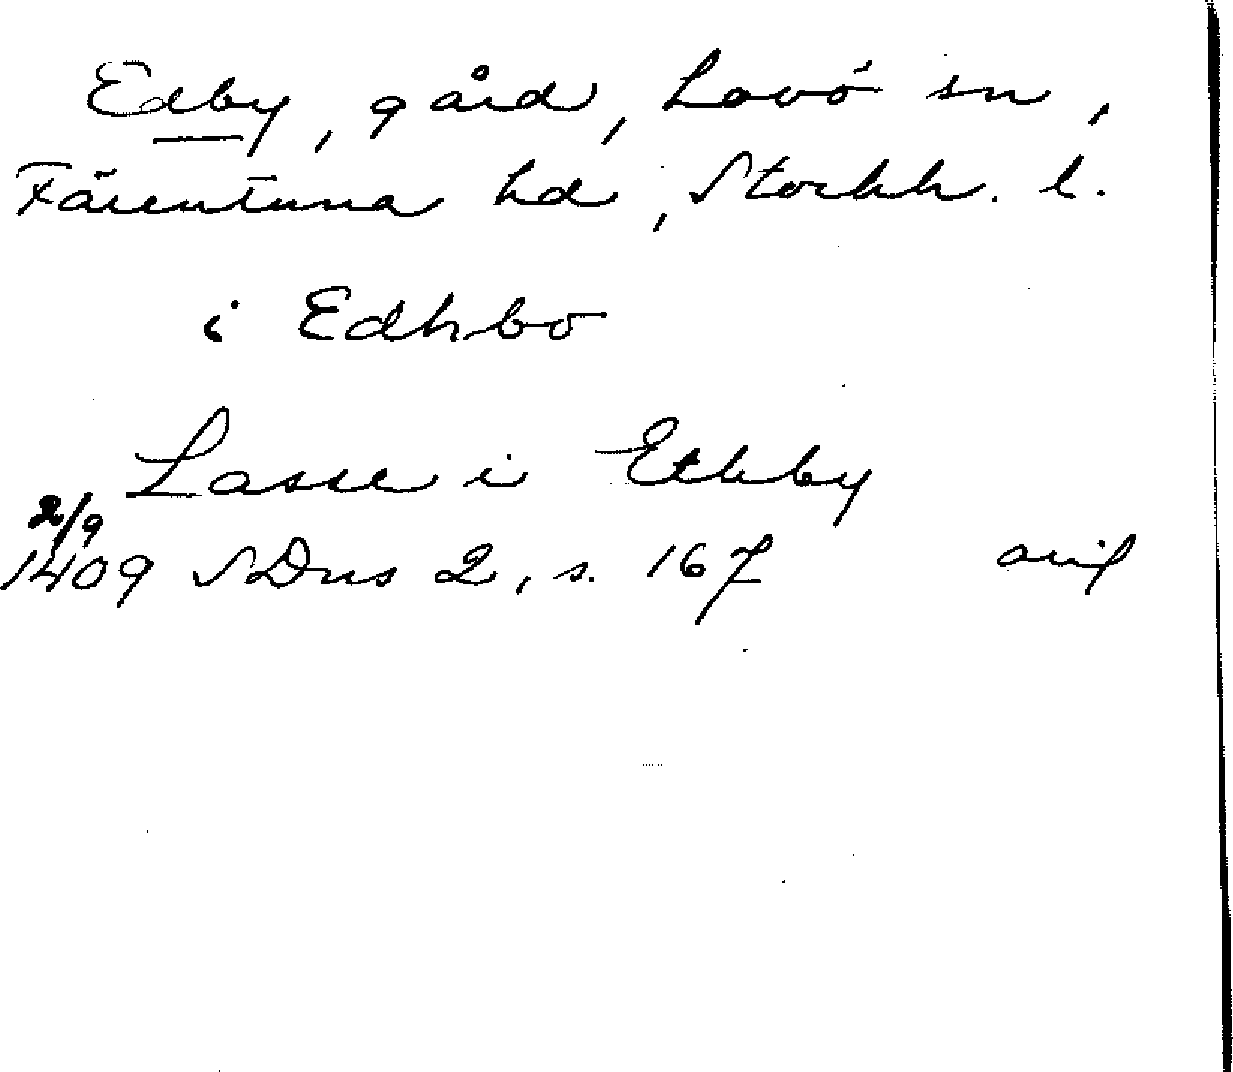 Edby, gård, Lovö sn,
Färentuna hd, Stockh. l.
i Edhbo
Lasse i Ethby
2/9
1409 SDns 2, s. 167